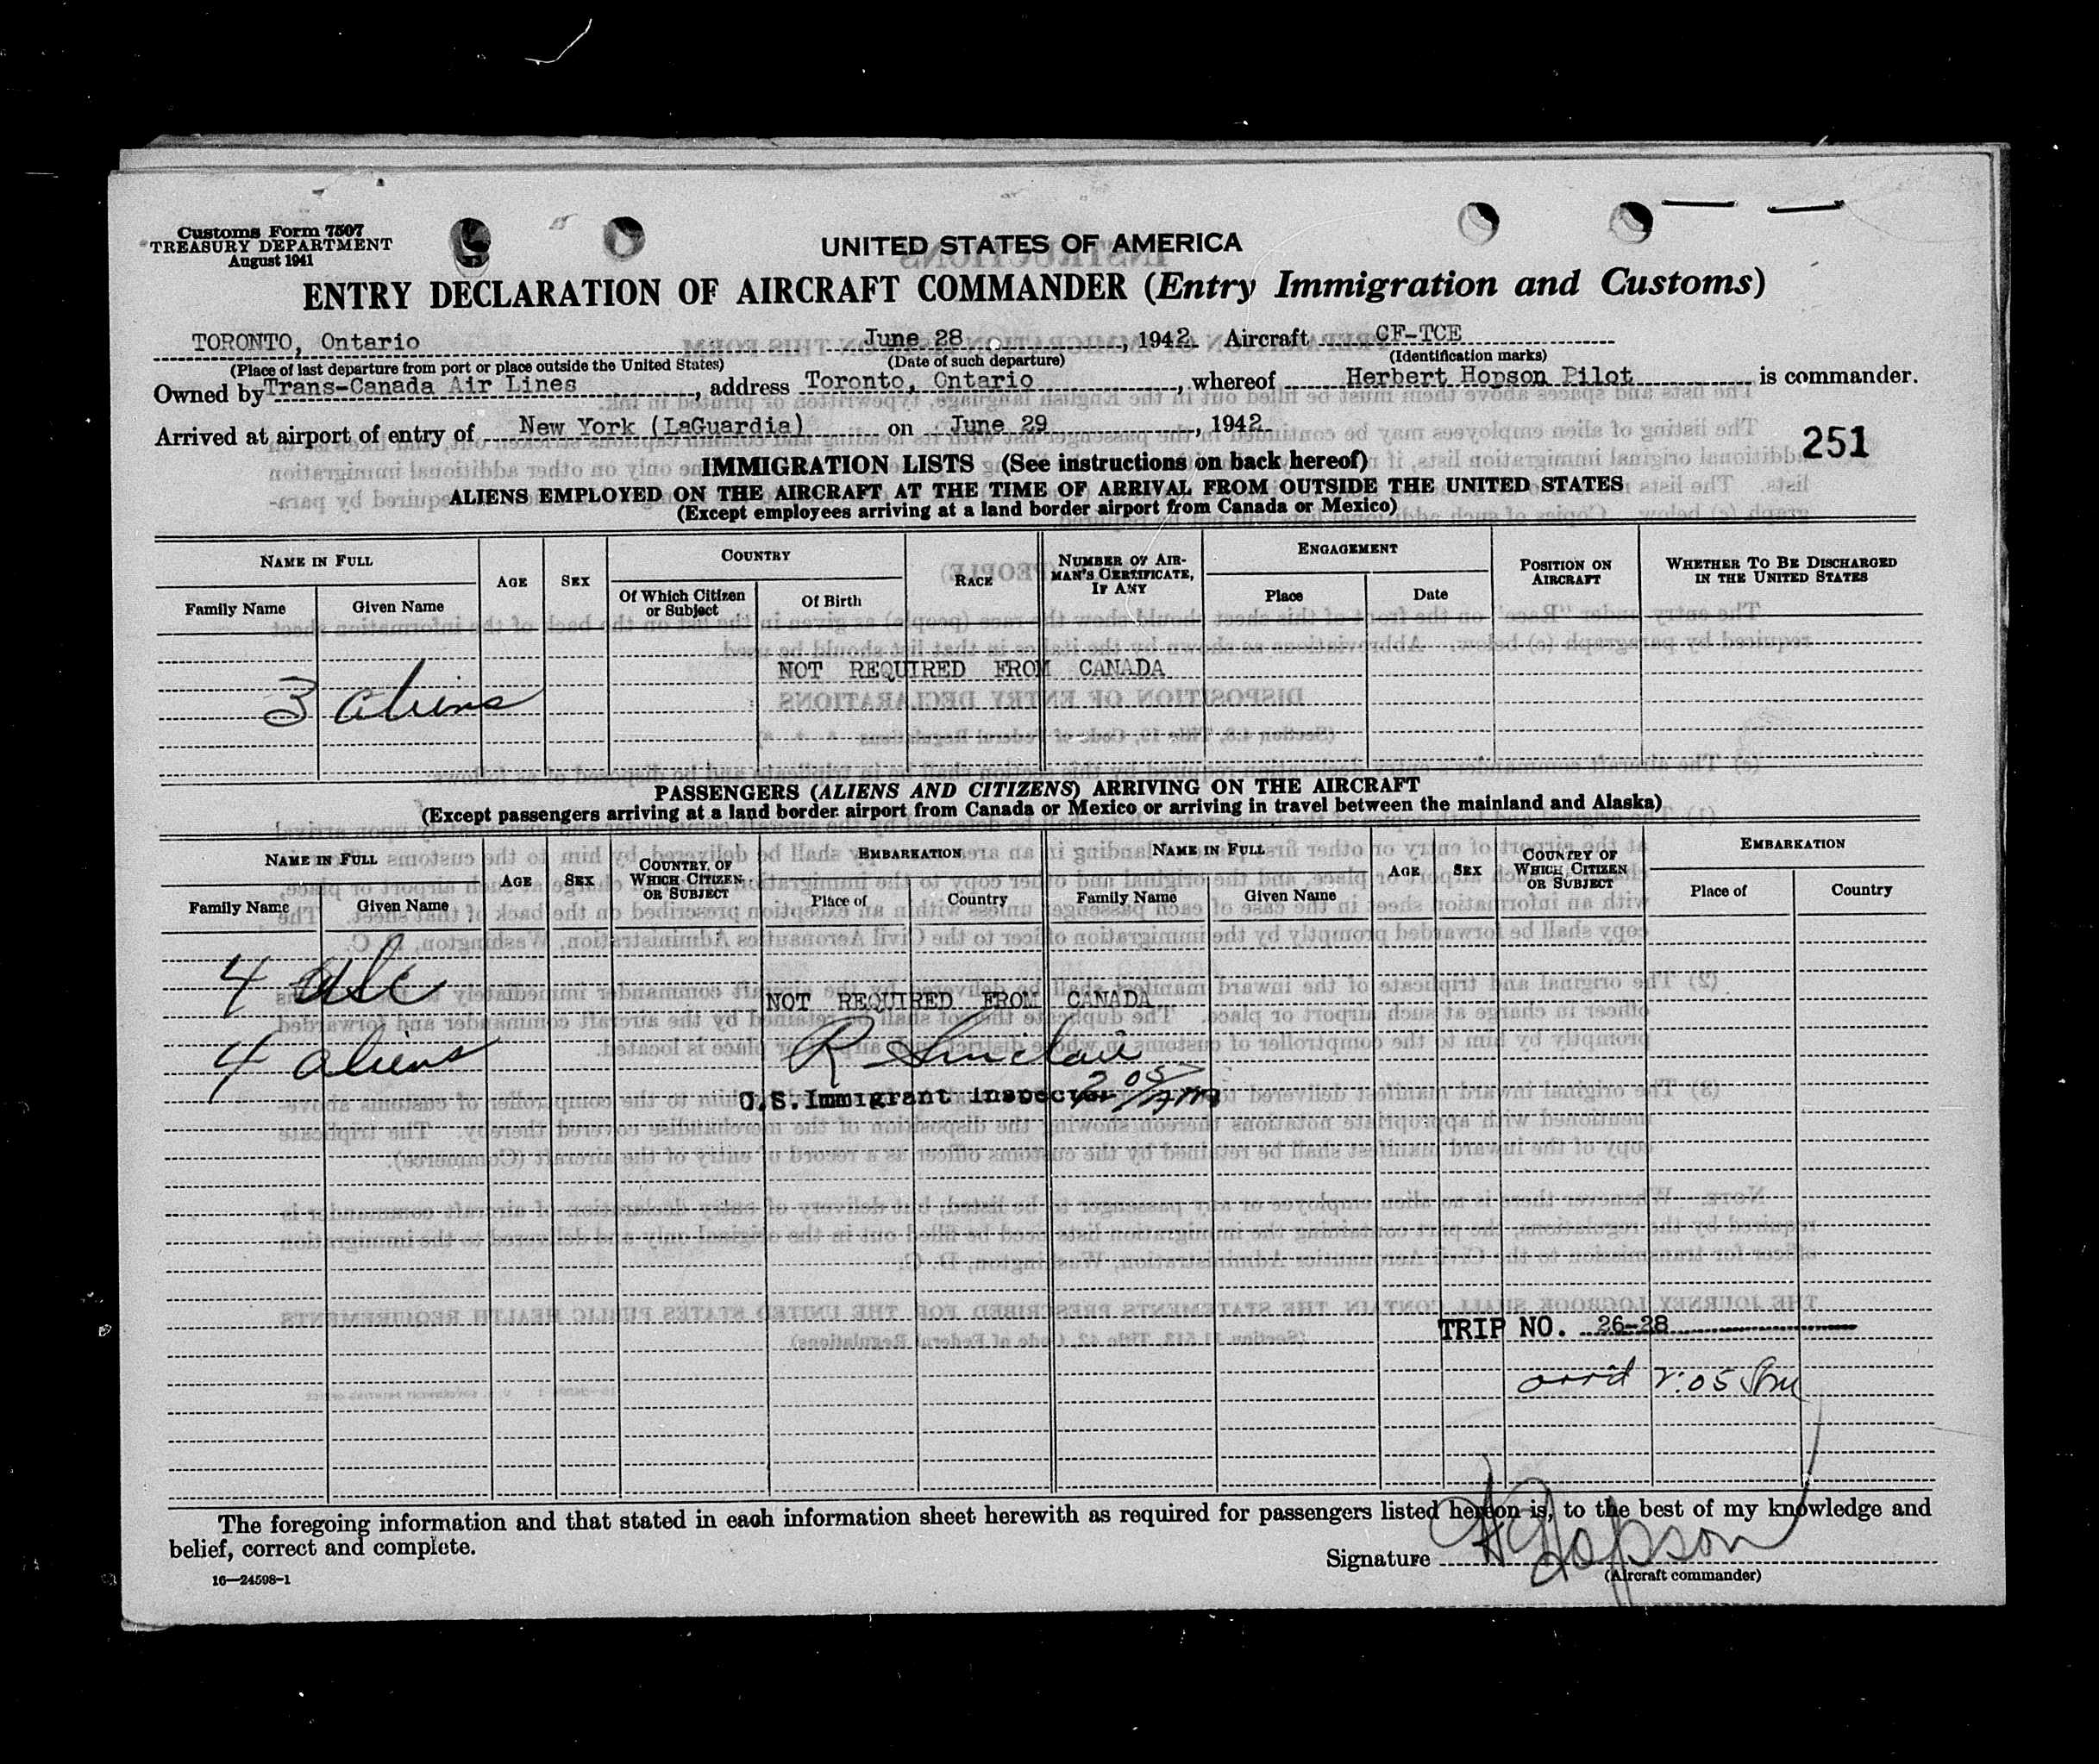 Customs Form 7507
TREASURY DEPARTMENT
August 1941
UNITED STATES OF AMERICA
ENTRY DECLARATION OF AIRCRAFT COMMANDER (Entry Immigration and Customs)
TORONTO, Ontario June 28, 1942 Aircraft CF-TCE
(Place of last departure from port or place outside the United States) (Date of such departure) (Identification marks)
Owned by Trans-Canada Air Lines, address Toronto, Ontario, whereof Herbert Hopson Pilot is commander.
Arrived at airport of entry of New York (LaGuardia) on June 29, 1942
251
IMMIGRATION LISTS (See instructions on back hereof)
ALIENS EMPLOYED ON THE AIRCRAFT AT THE TIME OF ARRIVAL FROM OUTSIDE THE UNITED STATES
(Except employees arriving at a land border airport from Canada or Mexico)
NAME IN FULL AGE SEX COUNTRY RACE NUMBER OF AIRMAN'S CERTIFICATE, IF ANY ENGAGEMENT POSITION ON AIRCRAFT WHETHER TO BE DISCHARGED IN THE UNITED STATES
Family Name Given Name Of Which Citizen or Subject Of Birth Place Date
NOT REQUIRED FROM CANADA
3 aliens
PASSENGERS (ALIENS AND CITIZENS) ARRIVING ON THE AIRCRAFT
(Except passengers arriving at a land border airport from Canada or Mexico or arriving in travel between the mainland and Alaska)
NAME IN FULL AGE SEX COUNTRY OF WHICH CITIZEN OR SUBJECT EMBARKATION NAME IN FULL AGE SEX COUNTRY OF WHICH CITIZEN OR SUBJECT EMBARKATION
Family Name Given Name Place of Country Family Name Given Name Place of Country
4
NOT REQUIRED FROM CANADA
4 aliens R Sinclair
U.S. Immigrant inspector 2 05
TRIP NO. 26-28
arrd 2:05
The foregoing information and that stated in each information sheet herewith as required for passengers listed hereon is, to the best of my knowledge and
belief, correct and complete.
Signature H Hopson
(Aircraft commander)
16—24598-1